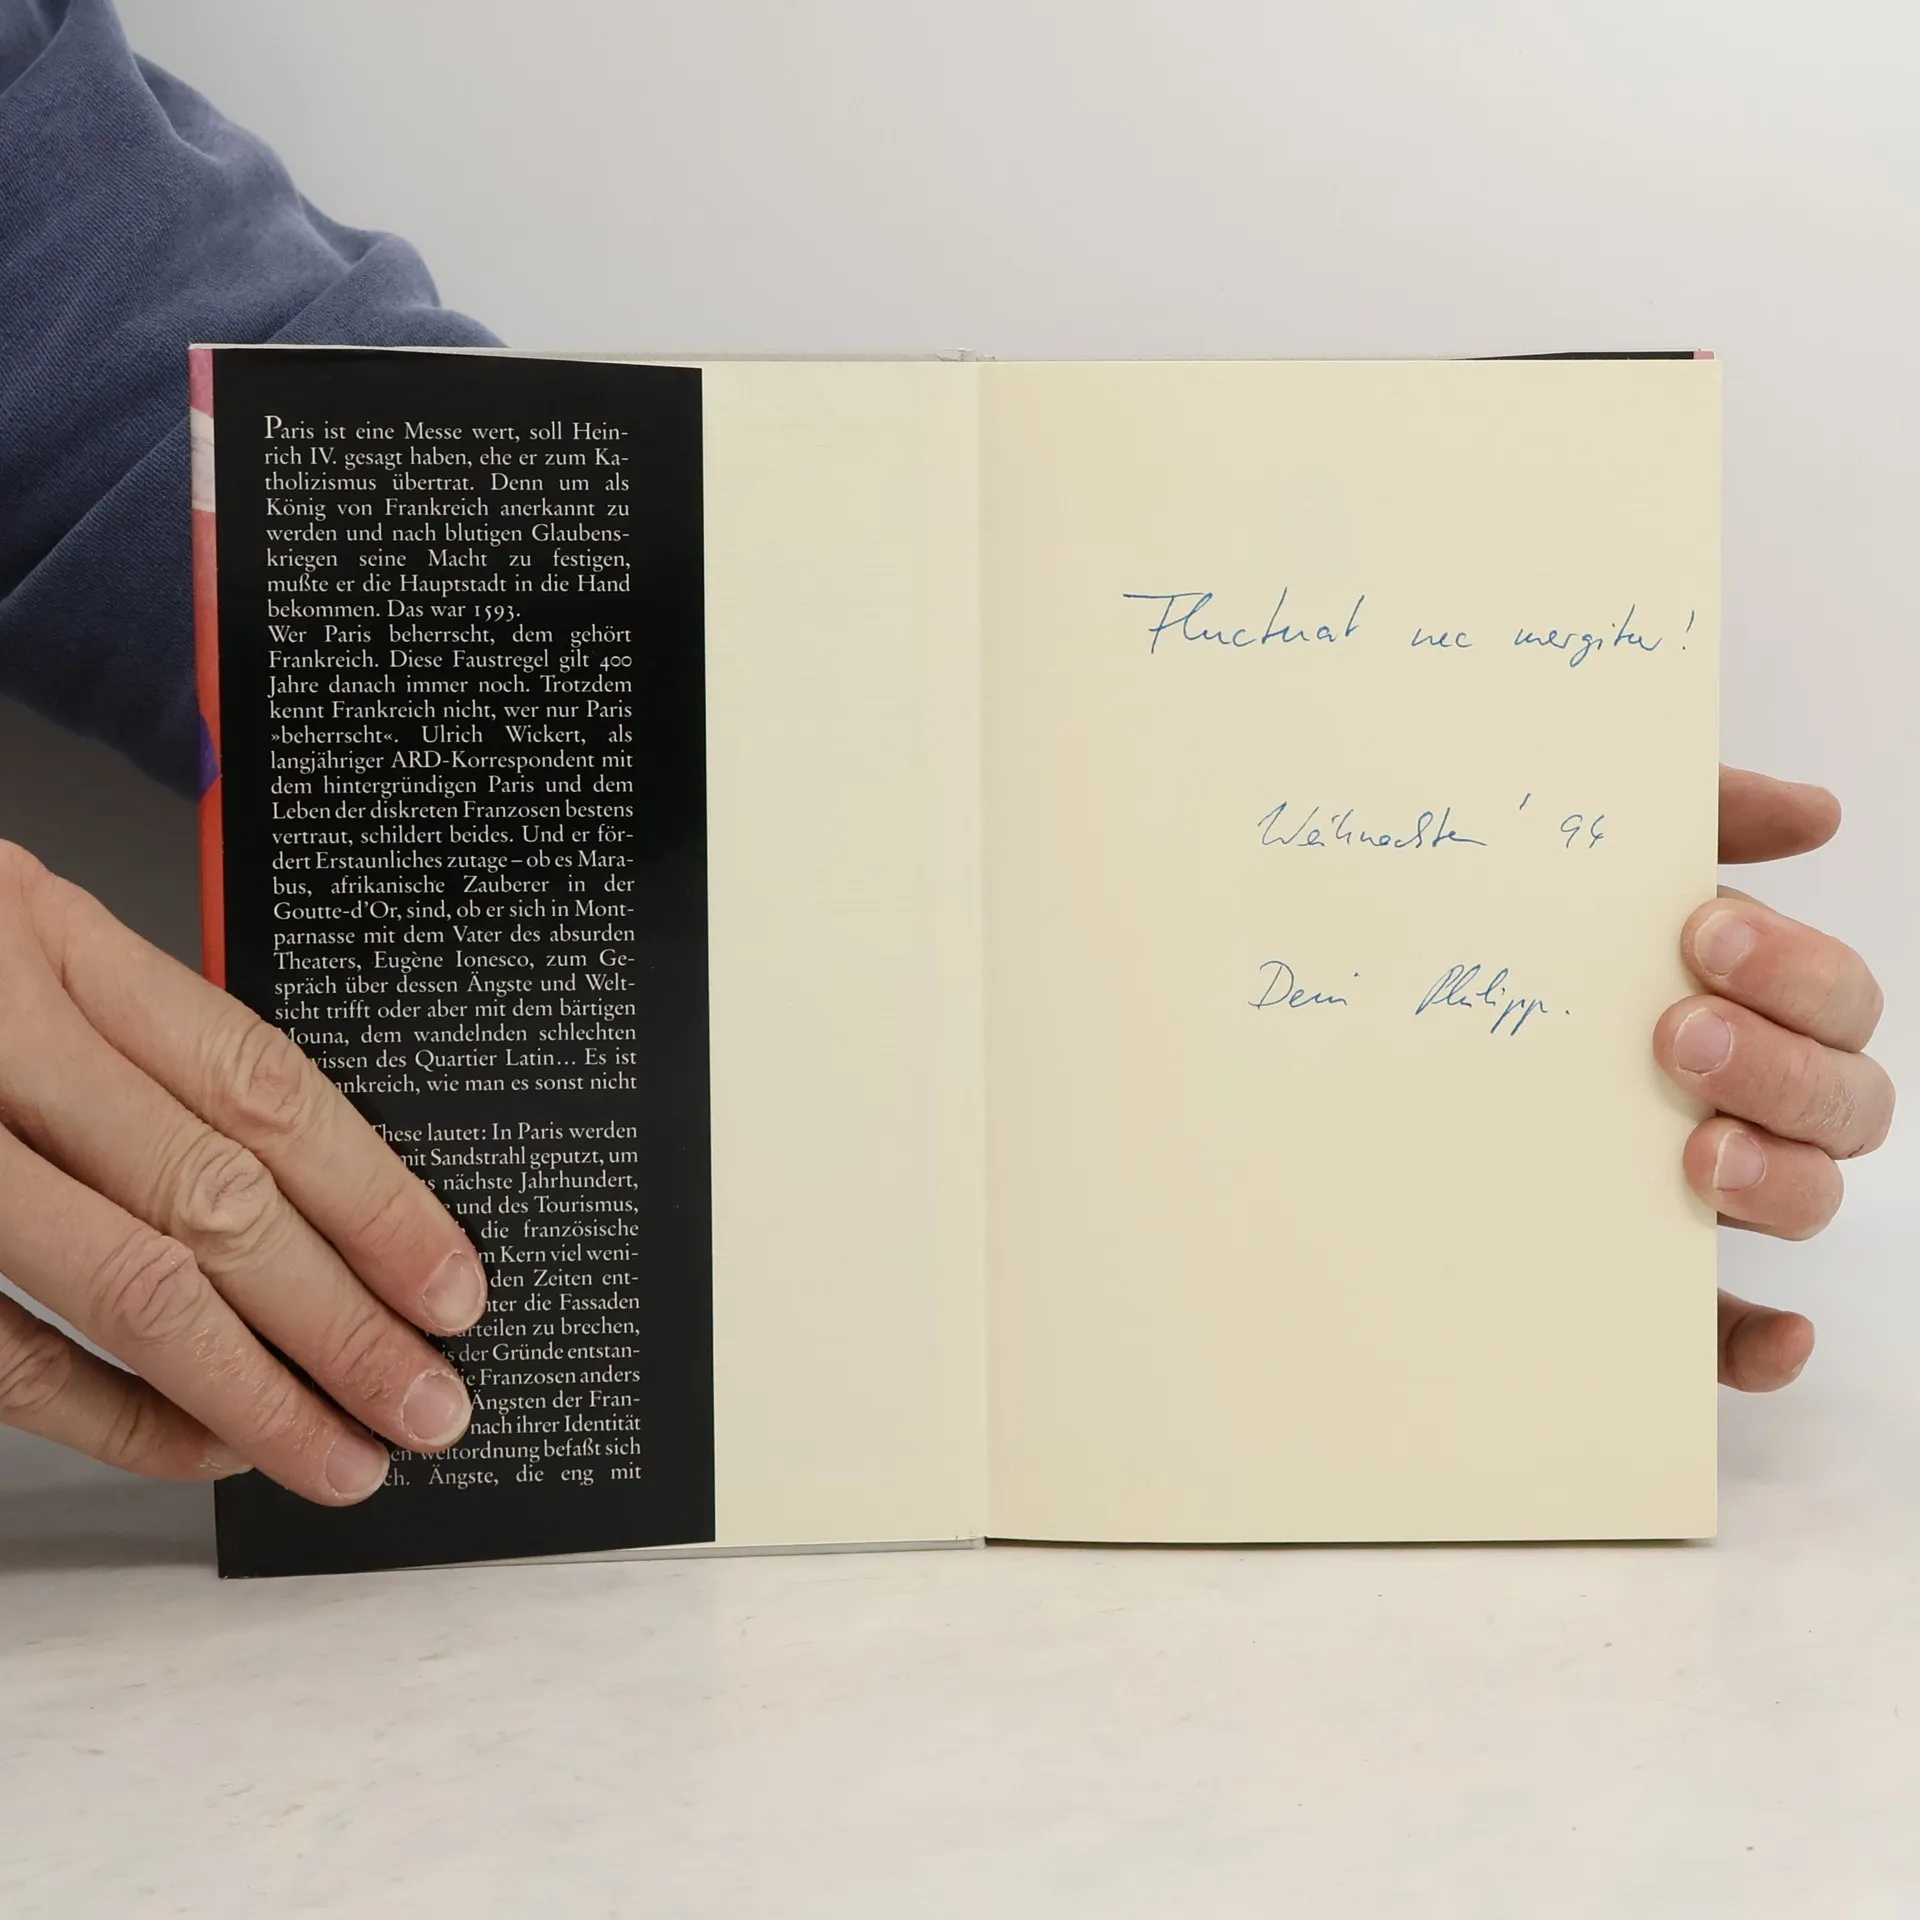 Paris ist eine Messe wert, soll Hein-
rich IV. gesagt haben, ehe er zum Ka-
tholizismus übertrat. Denn um als
König von Frankreich anerkannt zu
werden und nach blutigen Glaubens-
kriegen seine Macht zu festigen,
mußte er die Hauptstadt in die Hand
bekommen. Das war 1593.
Wer Paris beherrscht, dem gehört
Frankreich. Diese Faustregel gilt 400
Jahre danach immer noch. Trotzdem
kennt Frankreich nicht, wer nur Paris
»beherrscht«. Ulrich Wickert, als
langjähriger ARD-Korrespondent mit
dem hintergründigen Paris und dem
Leben der diskreten Franzosen bestens
vertraut, schildert beides. Und er för-
dert Erstaunliches zutage – ob es Mara-
bus, afrikanische Zauberer in der
Goutte-d'Or, sind, ob er sich in Mont-
parnasse mit dem Vater des absurden
Theaters, Eugène Ionesco, zum Ge-
spräch über dessen Ängste und Welt-
sicht trifft oder aber mit dem bärtigen
Mouna, dem wandelnden schlechten
wissen des Quartier Latin... Es ist
ankreich, wie man es sonst nicht
These lautet: In Paris werden
mit Sandstrahl geputzt, um
nächste Jahrhundert,
und des Tourismus,
die französische
im Kern viel weni-
den Zeiten ent-
nter die Fassaden
rteilen zu brechen,
der Gründe entstan-
die Franzosen anders
Ängsten der Fran-
nach ihrer Identität
en Weltordnung befaßt sich
ch. Ängste, die eng mit
Fluctuat nec mergitur!
Weihnachten '94
Dein Philipp.